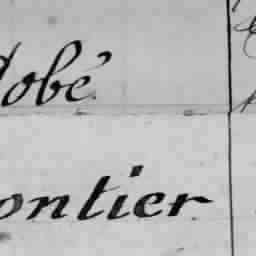 obé
ontier